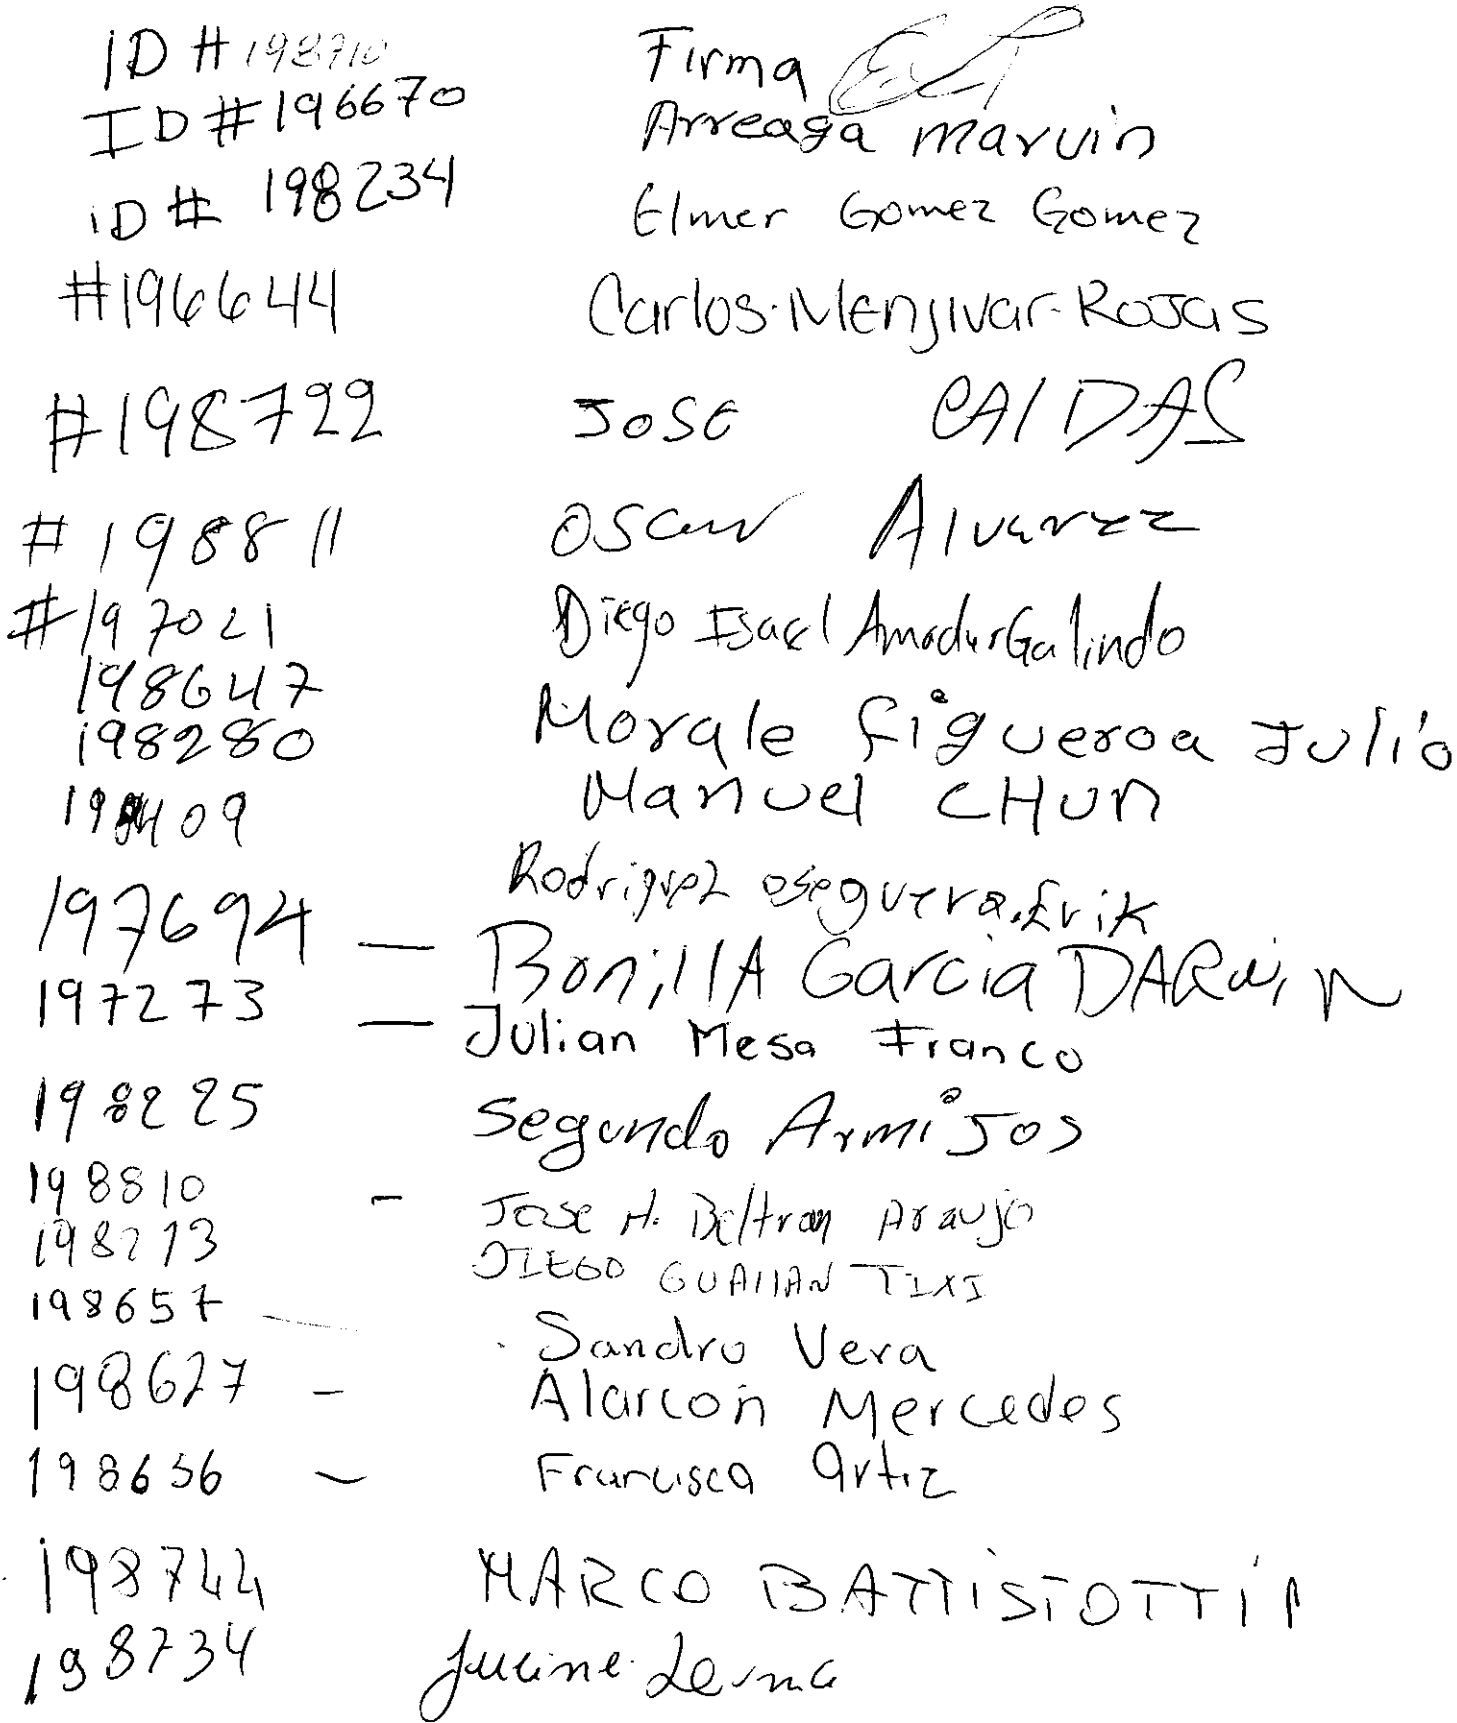 ID # 198710 Firma
ID # 196670 Arreaga Marvin
ID # 198234 Elmer Gomez Gomez
#196644 Carlos-Menjivar-Rojas
#198722 JOSE CAlDAS
#198811 OSCar Alvarez
#197021 Diego Isael Amador Galindo
198647 Morale Figueroa Julio
198280 Manuel CHun
409 Rodriguez oseguera. Erik
197694 — BonillA Garcia DARwin
197273 — Julian Mesa Franco
198225 Segundo Armijos
198810 - Jose H. Beltran Araujo
198273 DIEGO GUAllAN TIXI
198657 Sandro Vera
198627 - Alarcon Mercedes
198656 - Francisca Ortiz
198744 MARCO BATTISTOTTI
198734